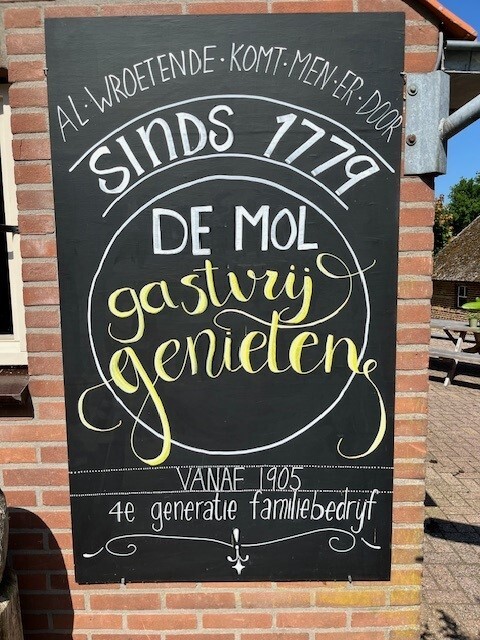 AL·WROETENDE·KOMT·MEN·ER·DOOR
SINDS 1779
DE MOL
gastvrij
genieten
VANAF 1905
4e generatie familiebedrijf